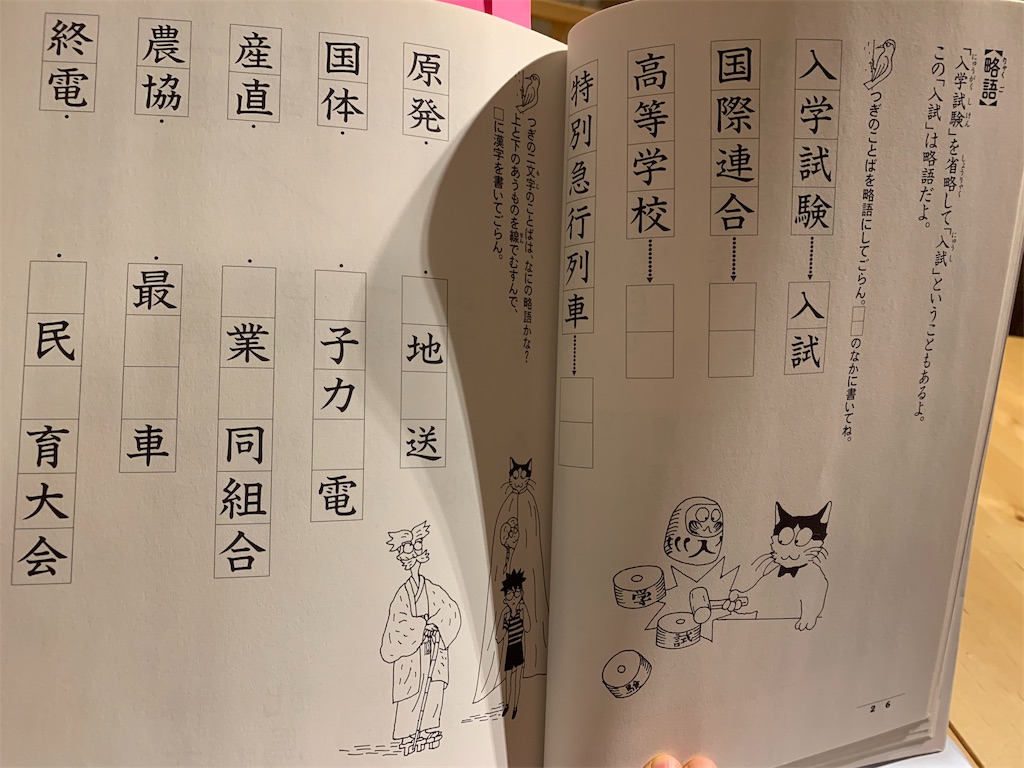 りゃくご
【略語】
にゅうがくしけん しょうりゃく にゅうし
「入学試験」を省略して「入試」ということもあるよ。
この「入試」は略語だよ。
つぎのことばを略語にしてごらん。□のなかに書いてね。
入学試験 入試
国際連合
高等学校
特別急行列車
入
学
試
験
26
もじ
つぎの二文字のことばは、なにの略語かな？
せん
上と下のあうものを線でむすんで、
□に漢字を書いてごらん。
原発
国体
産直
農協
終電
□地□送
□子力□電
□業□同組合
最□□車
□民□育大会